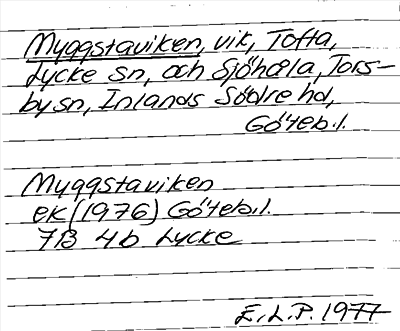 Myggstaviken, vik, Tofta,
Lycke sn, och Sjöhåla, Tors-
by sn, Inlands Södre hd,
Göteb.l.
Myggstaviken
ek (1976) Göteb.l.
7B 4b Lycke
E.L.P. 1977